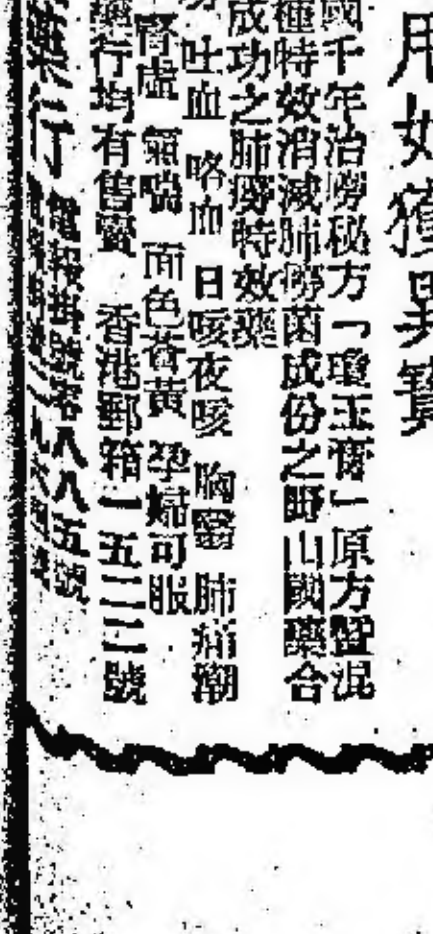 用如獲異寶
國千年治癆秘方「瓊玉膏」原方暨混
種特效消滅肺癆菌成份之野山國藥合
成功之肺癆特效藥
吐血 咯血 日咳夜咳 胸翳 肺痛潮
腎虛 氣喘 面色蒼黃 孕婦可服
藥行均有售賣 香港郵箱一五二三號
藥行
電報掛號 八八五號